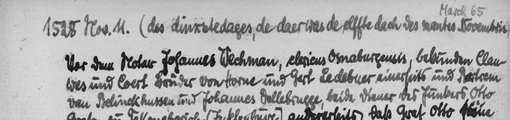 Marck 65
1528 Nov. 11. (des dinxstedages, de daer was de elffte dach des mantes Novembris)
Vor dem Notar Johannes Wechman, clericus Osnaburgensis, bekunden Clau-
wes und Coert Brüder von Horne und Gert Ledebuer einerseits und Bertram
van Belinckhussen und Johannes Dellebrugge, beide Diener des Junkers Otto
andererseits, daß Graf Otto